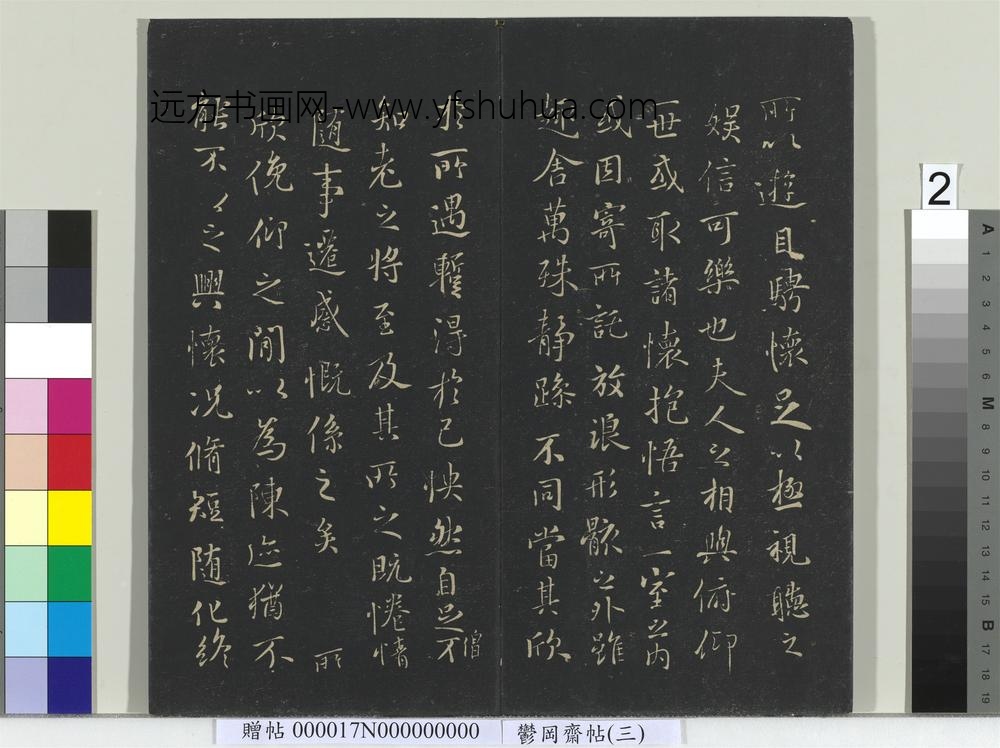 远方书画网-www.yfshuhua.com
所以遊目騁懷足以極視聽之
娛信可樂也夫人之相與俯仰
一世或取諸懷抱悟言一室之內
或因寄所託放浪形骸之外雖
趣舍萬殊靜躁不同當其欣
於所遇暫得於己怏然自足不
僧
知老之將至及其所之既惓情
隨事遷感慨係之矣 所
欣俛仰之間以為陳迹猶不
能不以之興懷況脩短隨化終
2
A 1 2 3 4 5 6 M 8 9 10 11 12 13 14 15 B 17 18 19
贈帖 000017N000000000
鬱岡齋帖(三)